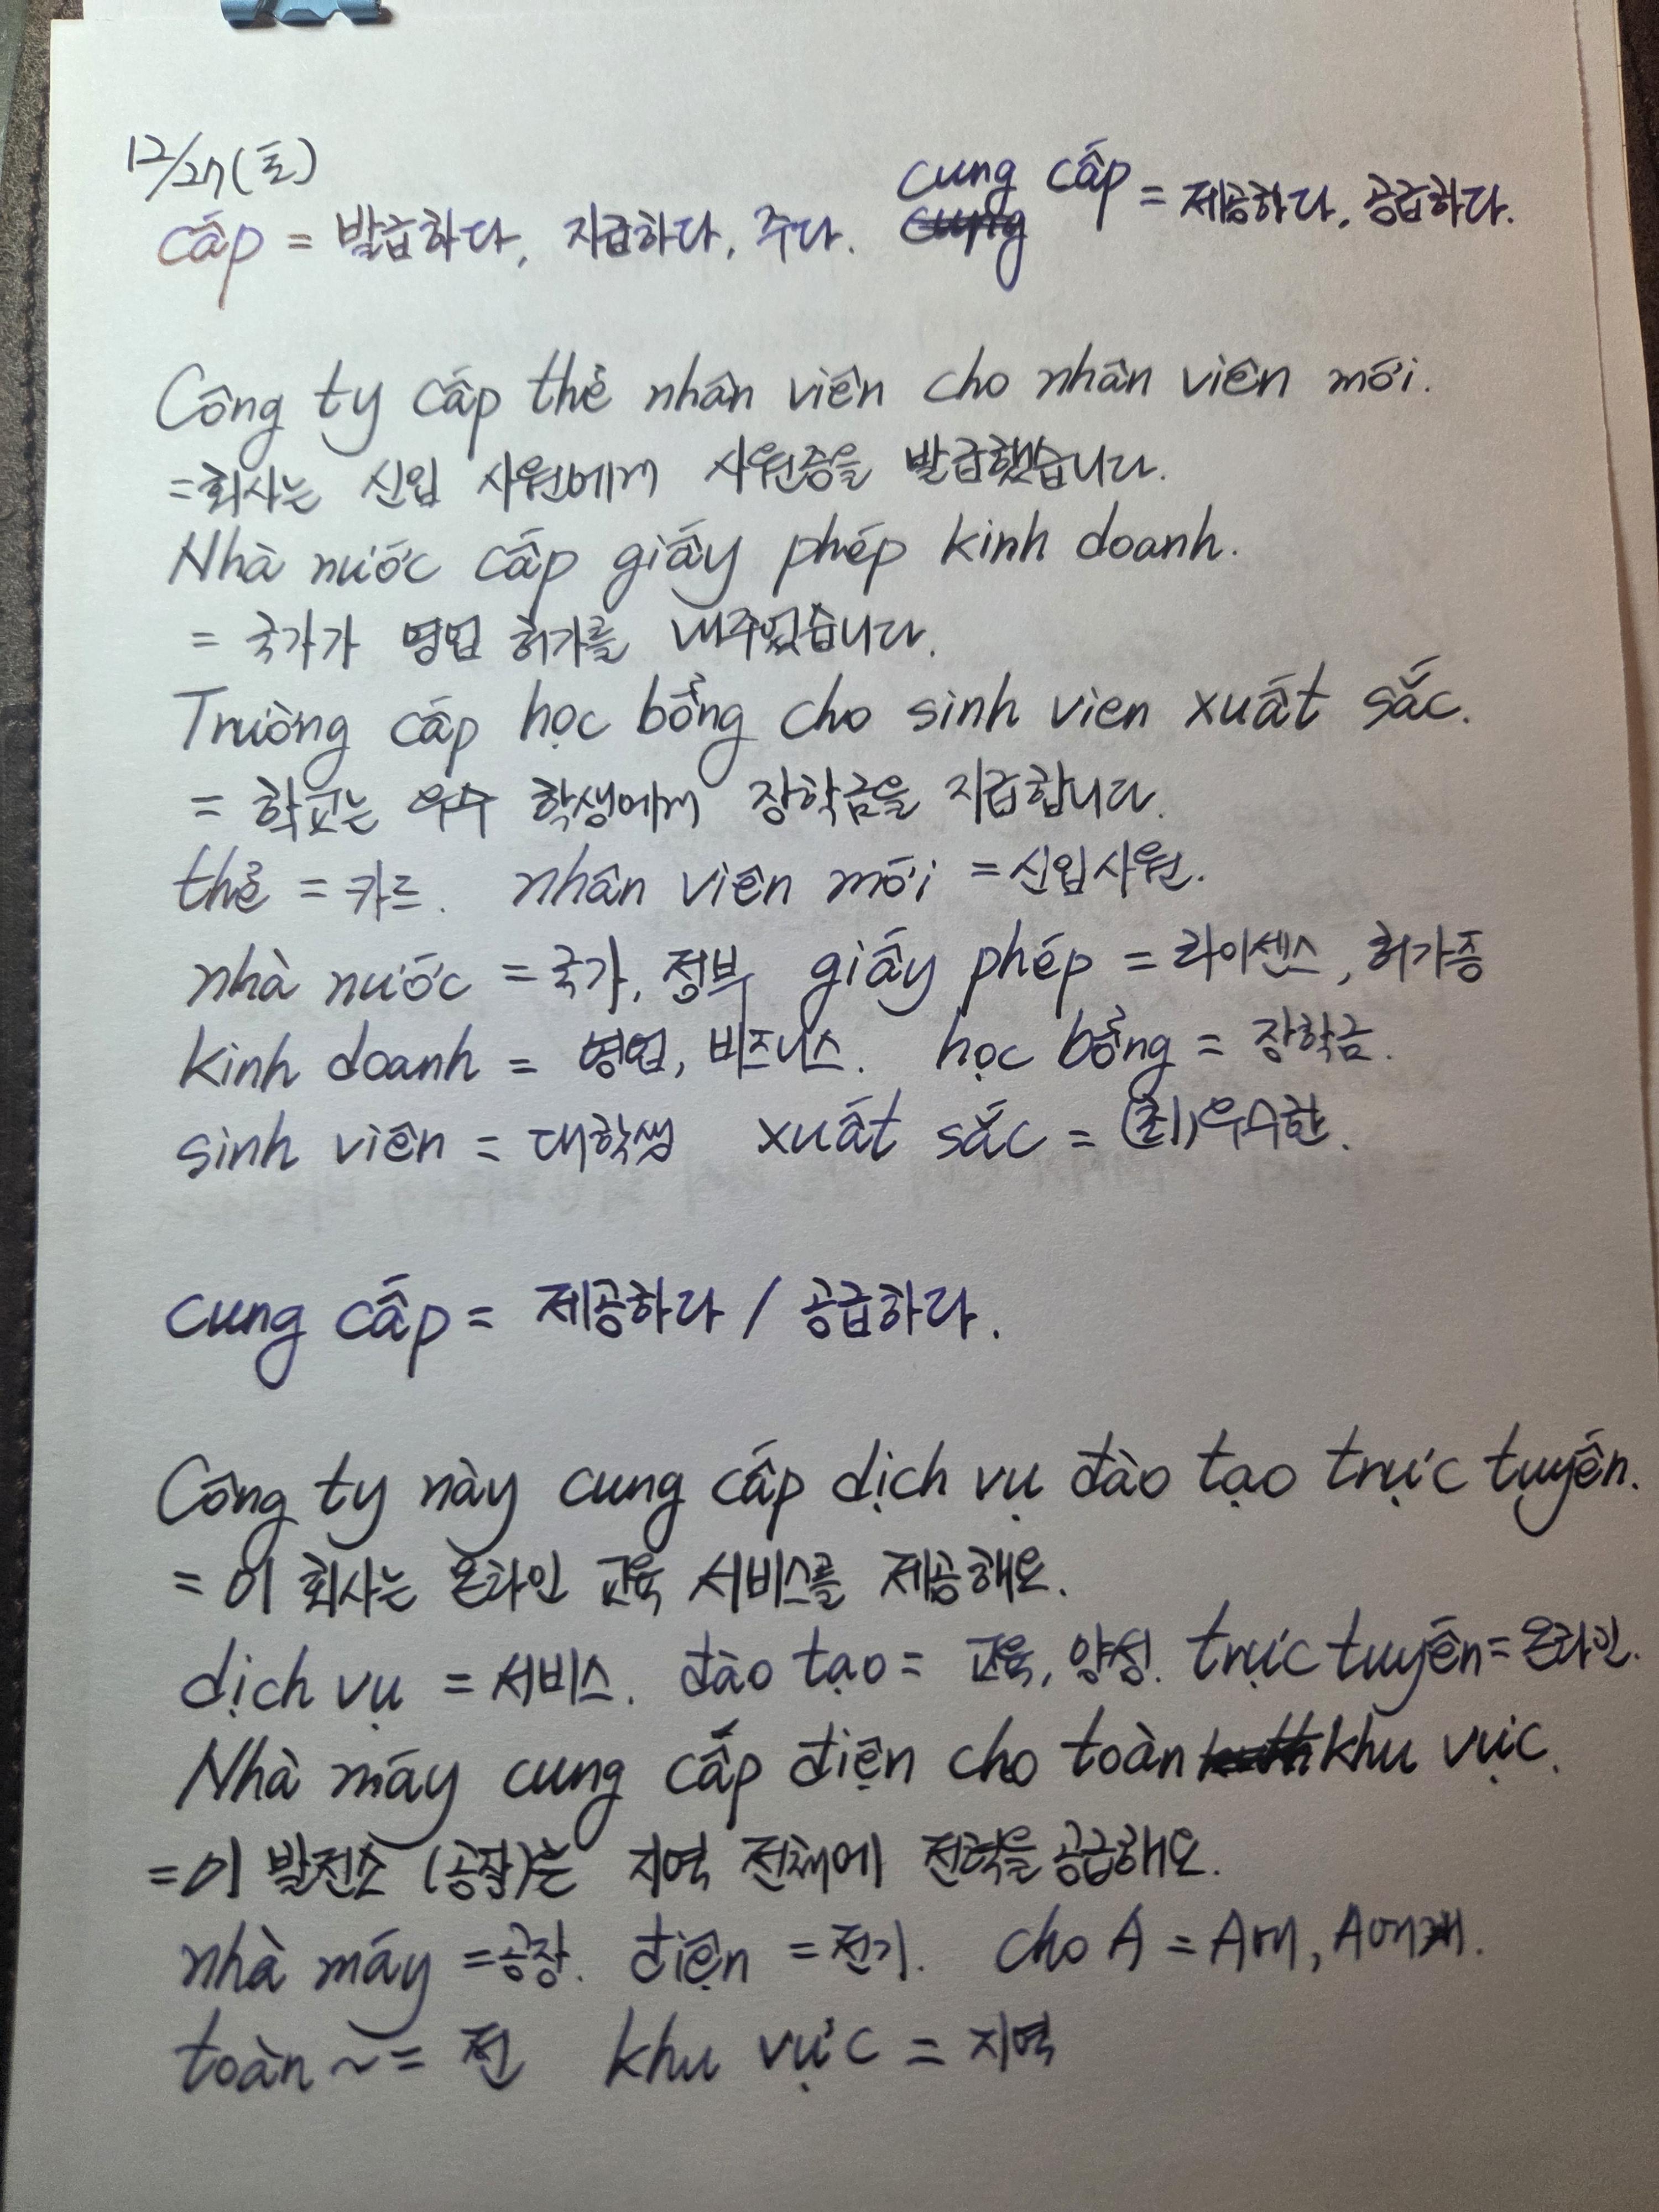 12/27(토)
cấp = 발급하다, 지급하다, 주다. cung cấp = 제공하다, 공급하다.
Công ty cấp thẻ nhân viên cho nhân viên mới.
=회사는 신입 사원에게 사원증을 발급했습니다.
Nhà nước cấp giấy phép kinh doanh.
= 국가가 영업 허가를 내주었습니다.
Trường cấp học bổng cho sinh vien xuất sắc.
= 학교는 우수 학생에게 장학금을 지급합니다.
thẻ = 카드. nhân viên mới = 신입사원.
nhà nước = 국가, 정부 giấy phép = 라이센스, 허가증
kinh doanh = 영업, 비즈니스. học bổng = 장학금.
sinh viên = 대학생 xuất sắc = (최)우수한.
cung cấp = 제공하다 / 공급하다.
Công ty này cung cấp dịch vụ đào tạo trực tuyến.
= 이 회사는 온라인 교육 서비스를 제공해요.
dịch vụ = 서비스. đào tạo = 교육, 양성. trực tuyến = 온라인.
Nhà máy cung cấp điện cho toàn khu vực.
= 이 발전소 (공장)는 지역 전체에 전력을 공급해요.
nhà máy = 공장. điện = 전기. cho A = A에, A에게.
toàn ~ = 전 khu vực = 지역